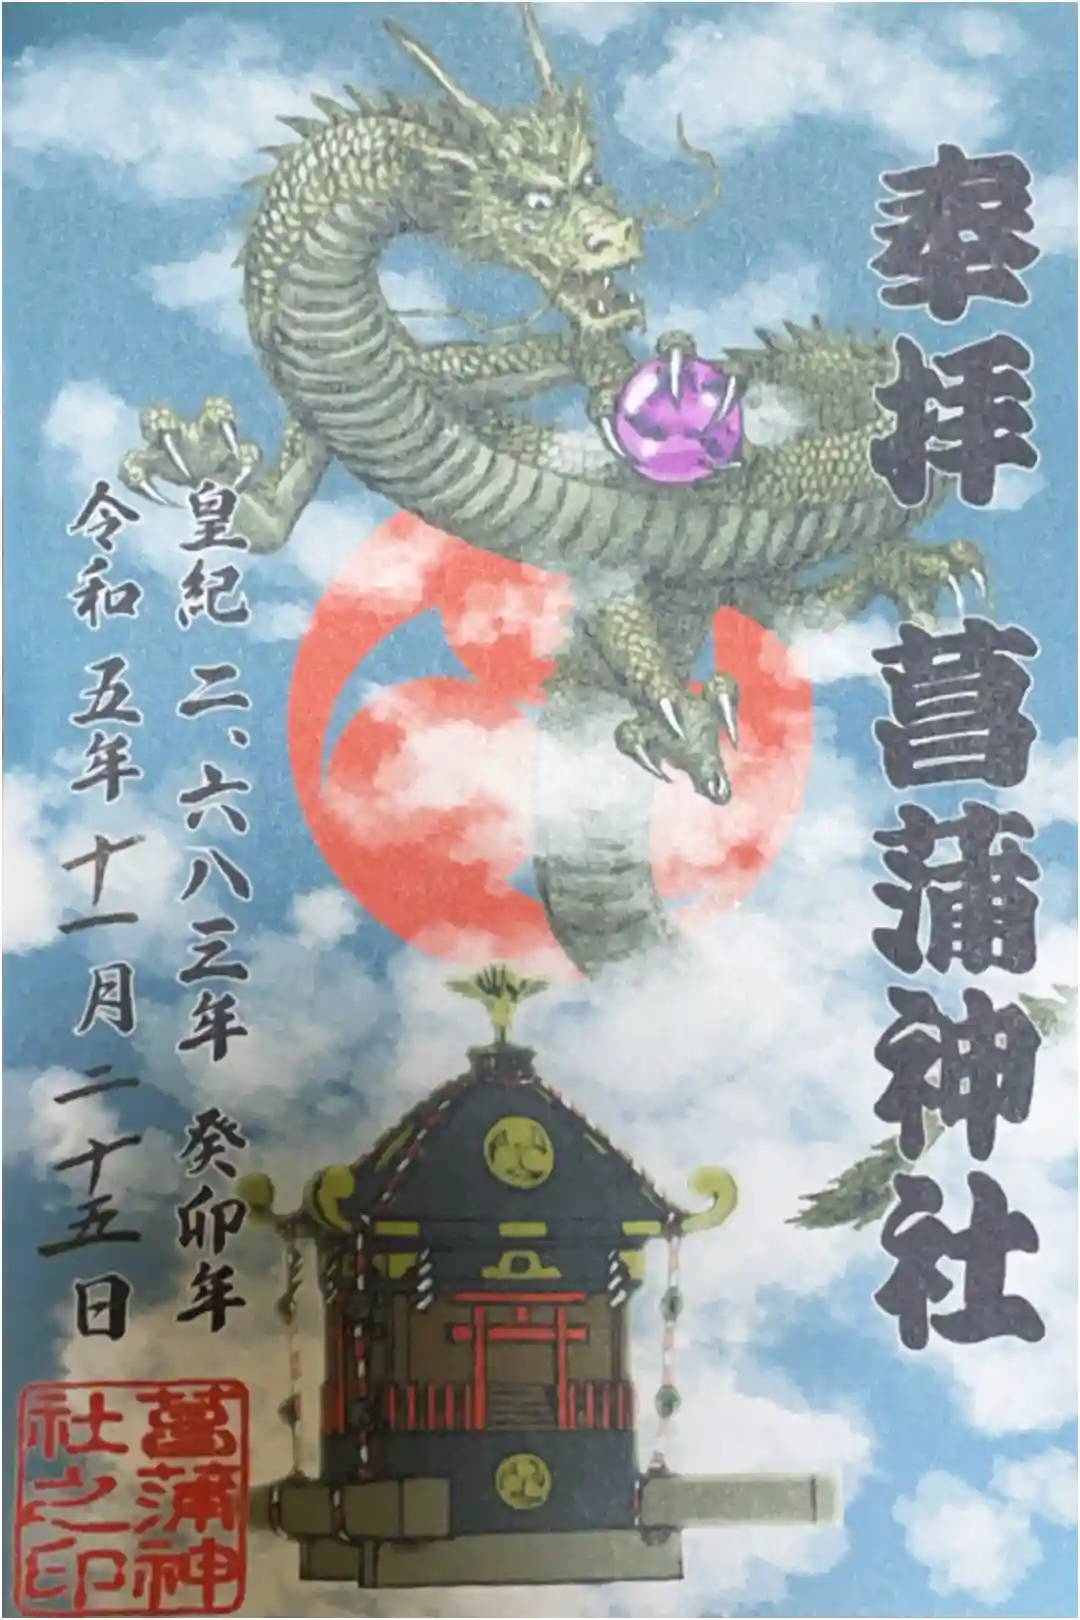 奉拝 菖蒲神社
皇紀 二、六八三年 癸卯年
令和 五年 十一月 二十五日
菖蒲神
社之印